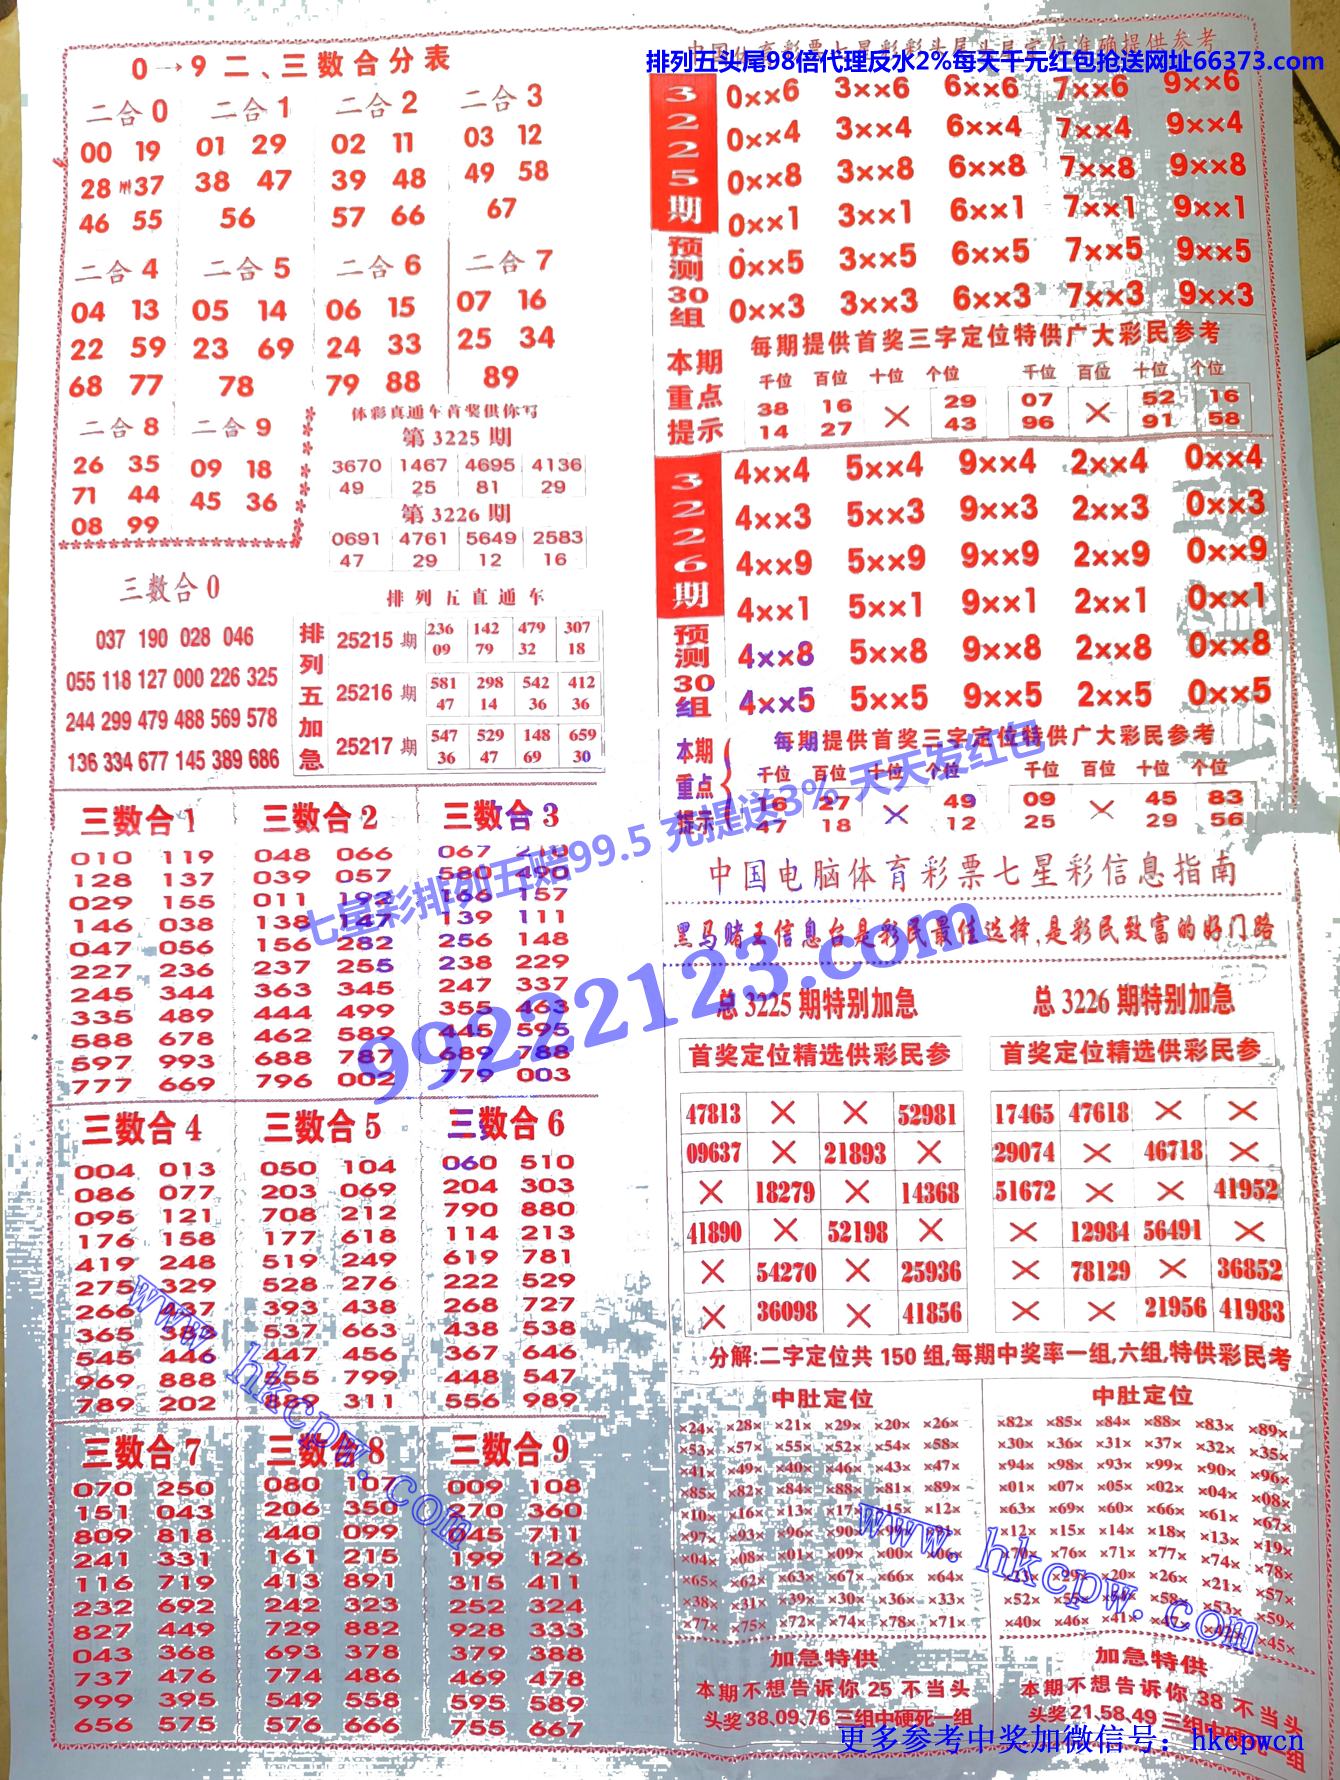 中国体育彩票七星彩彩头尾头尾定位准确提供参考
排列五头尾98倍代理反水2%每天千元红包抢送网址66373.com
0→9二、三数合分表
二合0 二合1 二合2 二合3
00 19 01 29 02 11 03 12
28 37 38 47 39 48 49 58
46 55 56 57 66 67
二合4 二合5 二合6 二合7
04 13 05 14 06 15 07 16
22 59 23 69 24 33 25 34
68 77 78 79 88 89
二合8 二合9
26 35 09 18
71 44 45 36
08 99
体彩真通车首奖供你写
第3225期
3670 1467 4695 4136
49 25 81 29
第3226期
0691 4761 5649 2583
47 29 12 16
三数合0
037 190 028 046
055 118 127 000 226 325
244 299 479 488 569 578
136 334 677 145 389 686
排列五直通车
排列五加急
25215期 236 142 479 307
09 79 32 18
25216期 581 298 542 412
47 14 36 36
25217期 547 529 148 659
36 47 69 30
三数合1 三数合2 三数合3
010 119 048 066 067
128 137 039 057 580 490
029 155 011 192 166 157
146 038 138 147 139 111
047 056 156 282 256 148
227 236 237 255 238 229
245 344 363 345 247 337
335 489 444 499 355 463
588 678 462 589 445 595
597 993 688 787 689 788
777 669 796 002 779 003
三数合4 三数合5 三数合6
004 013 050 104 060 510
086 077 203 069 204 303
095 121 708 212 790 880
176 158 177 618 114 213
419 248 519 249 619 781
275 329 528 276 222 529
266 393 438 268 727
365 537 663 438 538
545 446 447 456 367 646
969 888 555 799 448 547
789 202 889 311 556 989
三数合7 三数合8 三数合9
070 250 080 107 009 108
151 043 206 350 270 360
809 818 440 099 045 711
241 331 161 215 199 126
116 719 413 891 315 411
232 692 242 323 252 324
827 449 729 882 928 333
043 368 693 378 379 388
737 476 774 486 469 478
999 395 549 558 595 589
656 575 576 666 755 667
3225期
预测30组
0××6 3××6 6××6 7××6 9××6
0××4 3××4 6××4 7××4 9××4
0××8 3××8 6××8 7××8 9××8
0××1 3××1 6××1 7××1 9××1
0××5 3××5 6××5 7××5 9××5
0××3 3××3 6××3 7××3 9××3
本期重点提示
每期提供首奖三字定位特供广大彩民参考
千位 百位 十位 个位 千位 百位 十位 个位
38 16 × 29 07 × 52 16
14 27 43 96 91 58
3226期
预测30组
4××4 5××4 9××4 2××4 0××4
4××3 5××3 9××3 2××3 0××3
4××9 5××9 9××9 2××9 0××9
4××1 5××1 9××1 2××1 0××1
4××8 5××8 9××8 2××8 0××8
4××5 5××5 9××5 2××5 0××5
本期重点提示
每期提供首奖三字定位特供广大彩民参考
千位 百位 十位 个位 千位 百位 十位 个位
16 27 × 49 09 × 45 83
47 18 12 25 29 56
中国电脑体育彩票七星彩信息指南
黑马赌王信息台是彩民最佳选择,是彩民致富的好门路
总3225期特别加急 总3226期特别加急
首奖定位精选供彩民参 首奖定位精选供彩民参
47813 × × 52981 17465 47618 × ×
09637 × 21893 × 29074 × 46718 ×
× 18279 × 14368 51672 × × 41952
41890 × 52198 × × 12984 56491 ×
× 54270 × 25936 × 78129 × 36852
× 36098 × 41856 × × 21956 41983
分解:二字定位共150组,每期中奖率一组,六组,特供彩民考
中肚定位 中肚定位
×24× ×28× ×21× ×29× ×20× ×26× ×82× ×85× ×84× ×88× ×83× ×89×
×53× ×57× ×55× ×52× ×54× ×58× ×30× ×36× ×31× ×37× ×32× ×35×
×41× ×49× ×40× ×46× ×43× ×47× ×94× ×98× ×93× ×99× ×90× ×96×
×85× ×82× ×84× ×88× ×81× ×89× ×01× ×07× ×05× ×02× ×04× ×08×
×10× ×16× ×13× ×17× ×15× ×12× ×63× ×69× ×60× ×66× ×61× ×67×
×97× ×93× ×96× ×90× ×12× ×15× ×14× ×18× ×13× ×19×
×04× ×08× ×01× ×09× ×00× ×06× ×70× ×76× ×71× ×77× ×74× ×78×
×65× ×62× ×63× ×67× ×66× ×64× ×23× ×29× ×20× ×26× ×21× ×57×
×38× ×31× ×39× ×30× ×36× ×33× ×52× ×58× ×53× ×59×
×77× ×75× ×72× ×74× ×78× ×71× ×40× ×46× ×41× ×45×
加急特供 加急特供
本期不想告诉你25不当头 本期不想告诉你38不当头
头奖38,09,76三组中硬死一组 头奖21,58,49三组中硬死一组
七星彩排列五赔99.5 充提送3% 天天发红包
99222123.com
www.hkcpw.com
www.hkcpw.com
更多参考中奖加微信号：hkcpwcn